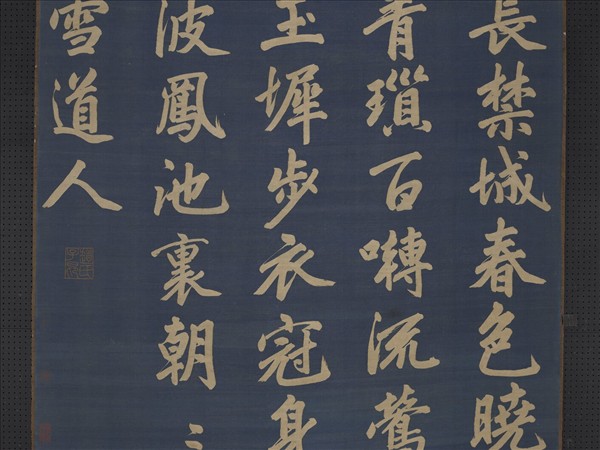 長禁城春色曉
青瑣百囀流鶯
玉墀步衣冠身
波鳳池裏朝〻
雪道人
趙氏子昂